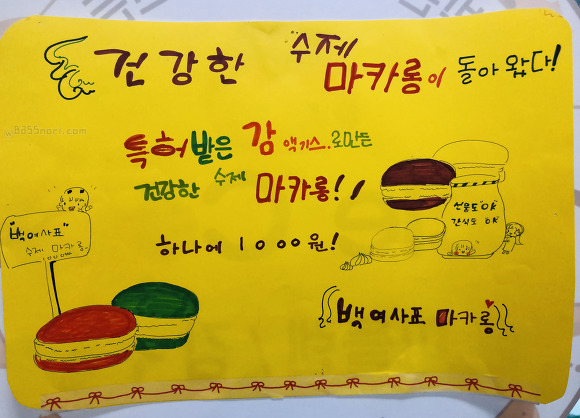 건강한 "수제 마카롱이 돌아왔다!"
특허받은 감 엑기스.로만든
건강한 수제 마카롱!!
하나에 1000원!
선물도 OK
간식도 OK
"백여사표"
수제 마카롱.
1000원
백여사표 마카롱